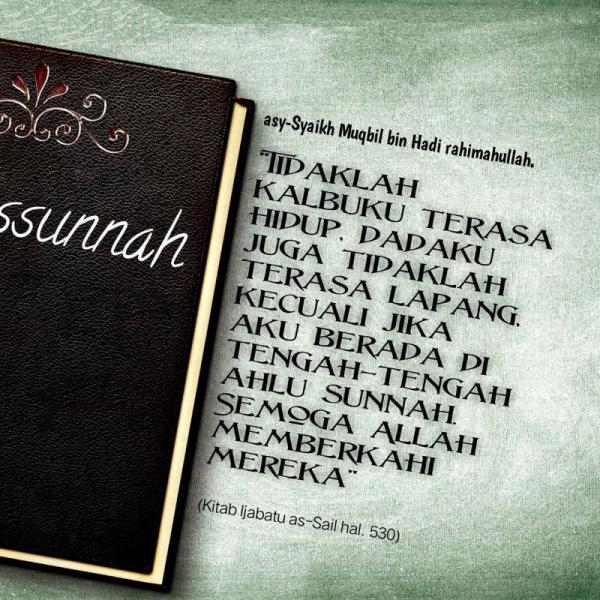 ssunnah
asy-Syaikh Muqbil bin Hadi rahimahullah.
"TIDAKLAH
KALBUKU TERASA
HIDUP, DADAKU
JUGA TIDAKLAH
TERASA LAPANG,
KECUALI JIKA
AKU BERADA DI
TENGAH-TENGAH
AHLU SUNNAH.
SEMOGA ALLAH
MEMBERKAHI
MEREKA"
(Kitab Ijabatu as-Sail hal. 530)